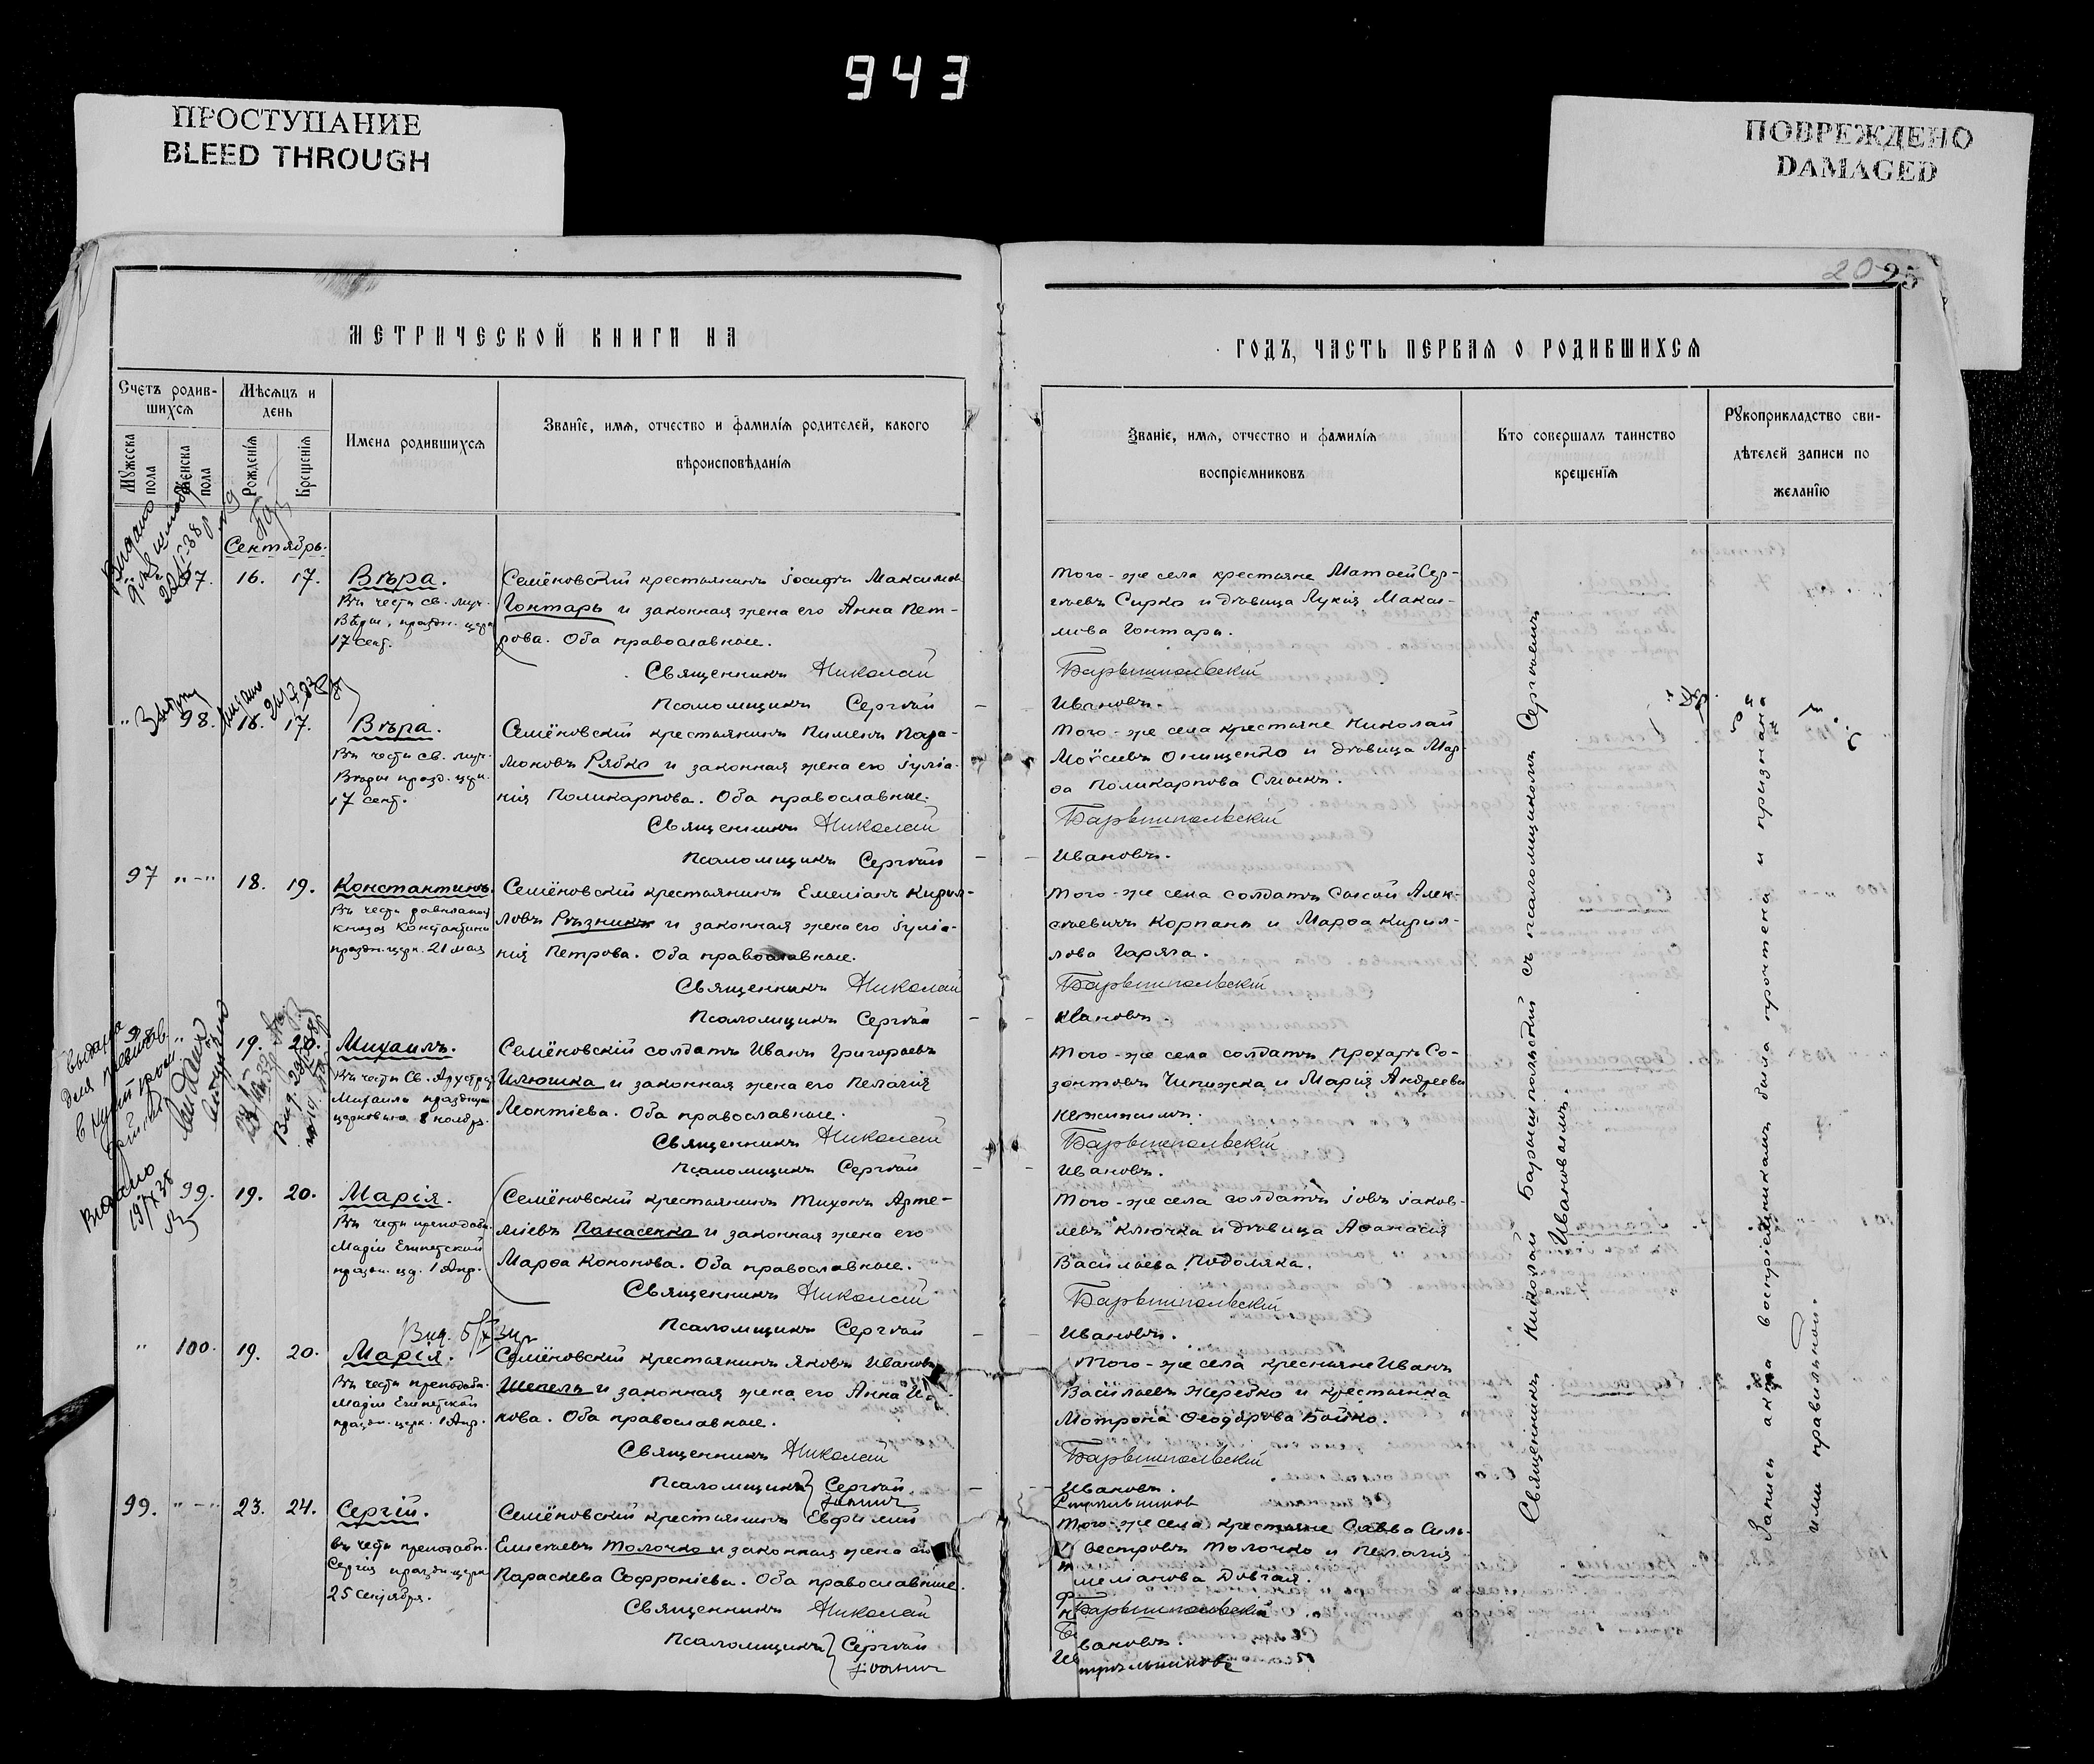 943
ПРОСТУПАНИЕ
BLEED THROUGH
ПОВРЕЖДЕНО
DAMAGED
20 25
МЕТРИЧЕСКОЙ КНИГИ НА
ГОДЪ, ЧАСТЬ ПЕРВАЯ О РОДИВШИХСЯ
Счетъ родив-
шихся
Мѣсяцъ и
день
Мужеска
пола
Женска
пола
Рожденія
Крещенія
Имена родившихся
Званіе, имя, отчество и фамилія родителей, какого
вѣроисповѣданія
Званіе, имя, отчество и фамилія
воспріемниковъ
Кто совершалъ таинство
крещенія
Рукоприкладство сви-
дѣтелей записи по
желанію
Сентябрь.
97. 16. 17. Вѣра.
Въ честь св. муч.
Вѣры, праздн. церк.
17 сент.
Семёновскій крестьянинъ Іосифъ Максимов
Гонтарь и законная жена его Анна Пет-
рова. Оба православные.
Священникъ Николай
Псаломщикъ Сергѣй
Того-же села крестьяне Матѳей Сер-
гѣевъ Сирко и дѣвица Лукія Макси-
мова Гонтарь.
Барышпольскій
Ивановъ.
" 98. 16. 17. Вѣра.
Въ честь св. муч.
Вѣры празд. церк.
17 сент.
Семёновскій крестьянинъ Пименъ Пара-
моновъ Рябко и законная жена его Іуліа-
нія Поликарпова. Оба православные.
Священникъ Николай
Псаломщикъ Сергѣй
Того-же села крестьяне Николай
Моѵсеевъ Онищенко и дѣвица Мар-
ѳа Поликарпова
Барышпольскій
Ивановъ.
97 "-" 18. 19. Константинъ.
Въ честь равноапост.
Князя Константина
праздн. церк. 21 мая
Семёновскій крестьянинъ Емеліанъ Кирил-
ловъ Рѣзникъ и законная жена его Іуліа-
нія Петрова. Оба православные.
Священникъ Николай
Псаломщикъ Сергѣй
Того-же села солдатъ Сысой Алек-
сѣевичъ Корпань и Марѳа Кирил-
лова Гаряга.
Барышпольскій
Ивановъ.
98. " 19. 20. Михаилъ.
Въ честь Св. Архистр.
Михаила празднуем.
церковью 8 ноября.
Семёновскій солдатъ Иванъ Григорьевъ
Илюшка и законная жена его Пелагія
Леонтіева. Оба православные.
Священникъ Николай
Псаломщикъ Сергѣй
Того-же села солдатъ Прохоръ Со-
зонтовъ Чепижка и Марія Андреева
Барышпольскій
Ивановъ.
99. 19. 20. Марія.
Въ честь преподобн.
Маріи Египетской
праздн. цр. 1 Апр.
Семёновскій крестьянинъ Тихонъ Арте-
міевъ Панасенко и законная жена его
Марѳа Кононова. Оба православные.
Священникъ Николай
Псаломщикъ Сергѣй
Того-же села солдатъ Іовъ Іаков-
левъ Ключка и дѣвица Аѳанасія
Васильева Подоляка.
Барышпольскій
Ивановъ.
" 100. 19. 20. Марія.
Въ честь преподобн.
Маріи Египетской
праздн. церк. 1 Апр.
Семёновскій крестьянинъ Яковъ Ивановъ
Шепель и законная жена его Анна
кова. Оба православные.
Священникъ Николай
Псаломщики Сергѣй
Іоаннъ
Того-же села крестьяне Иванъ
Васильевъ Жеребко и крестьянка
Мотрона Ѳеодорова Бойко.
Барышпольскій
Ивановъ.
Стрѣльниковъ
99. "-" 23. 24. Сергій.
въ честь преподобн.
Сергія праздн. церк.
25 сентября.
Семёновскій крестьянинъ Евфимій
Елисѣевъ Толочко и законная жена его
Параскева Софроніева. Оба православные.
Священникъ Николай
Псаломщики Сергѣй
Іоаннъ
Того-же села крестьяне Савва Силь-
вестровъ Толочко и Пелагія
меліанова Довгая.
Барышпольскій
вановъ.
трѣльниковъ
Священникъ Николай Барышпольскій съ псаломщикомъ Сергѣемъ
Ивановымъ.
Запись акта воспріемникамъ была прочтена и признана
ими правильной.